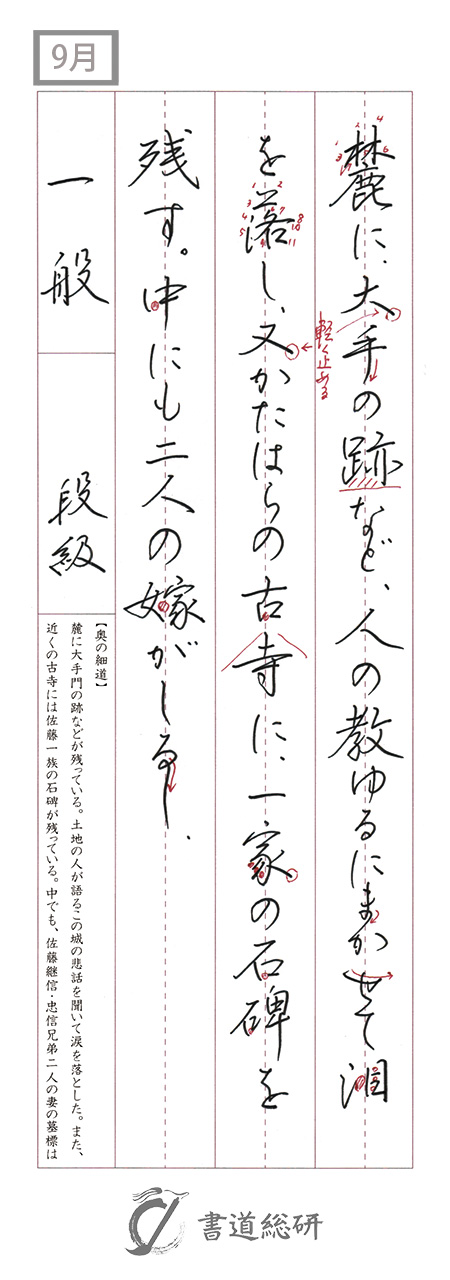 9月
麓に、大手の跡など、人の教ゆるにまかせて泪
を落し、又かたはらの古寺に、一家の石碑を
残す。中にも二人の嫁がしるし、
軽く止める
一般
段級
【奥の細道】
麓に大手門の跡などが残っている。土地の人が語るこの城の悲話を聞いて涙を落とした。また、
近くの古寺には佐藤一族の石碑が残っている。中でも、佐藤継信・忠信兄弟二人の妻の墓標は
書道総研